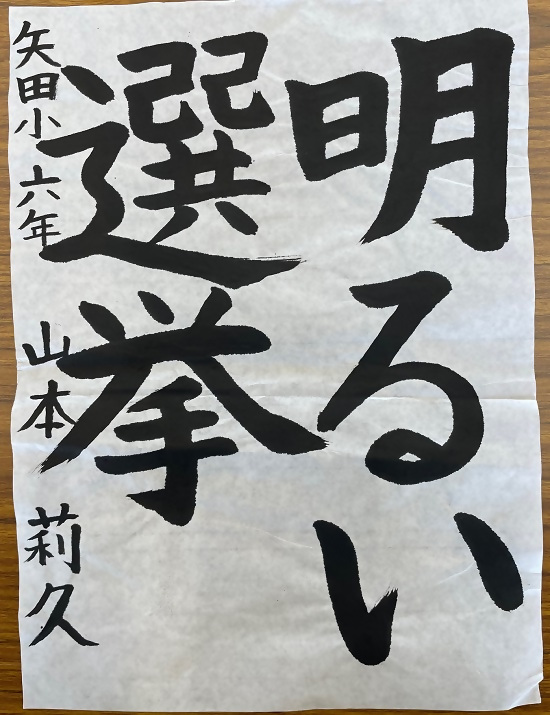 明るい
選挙
矢田小 六年 山本 莉久